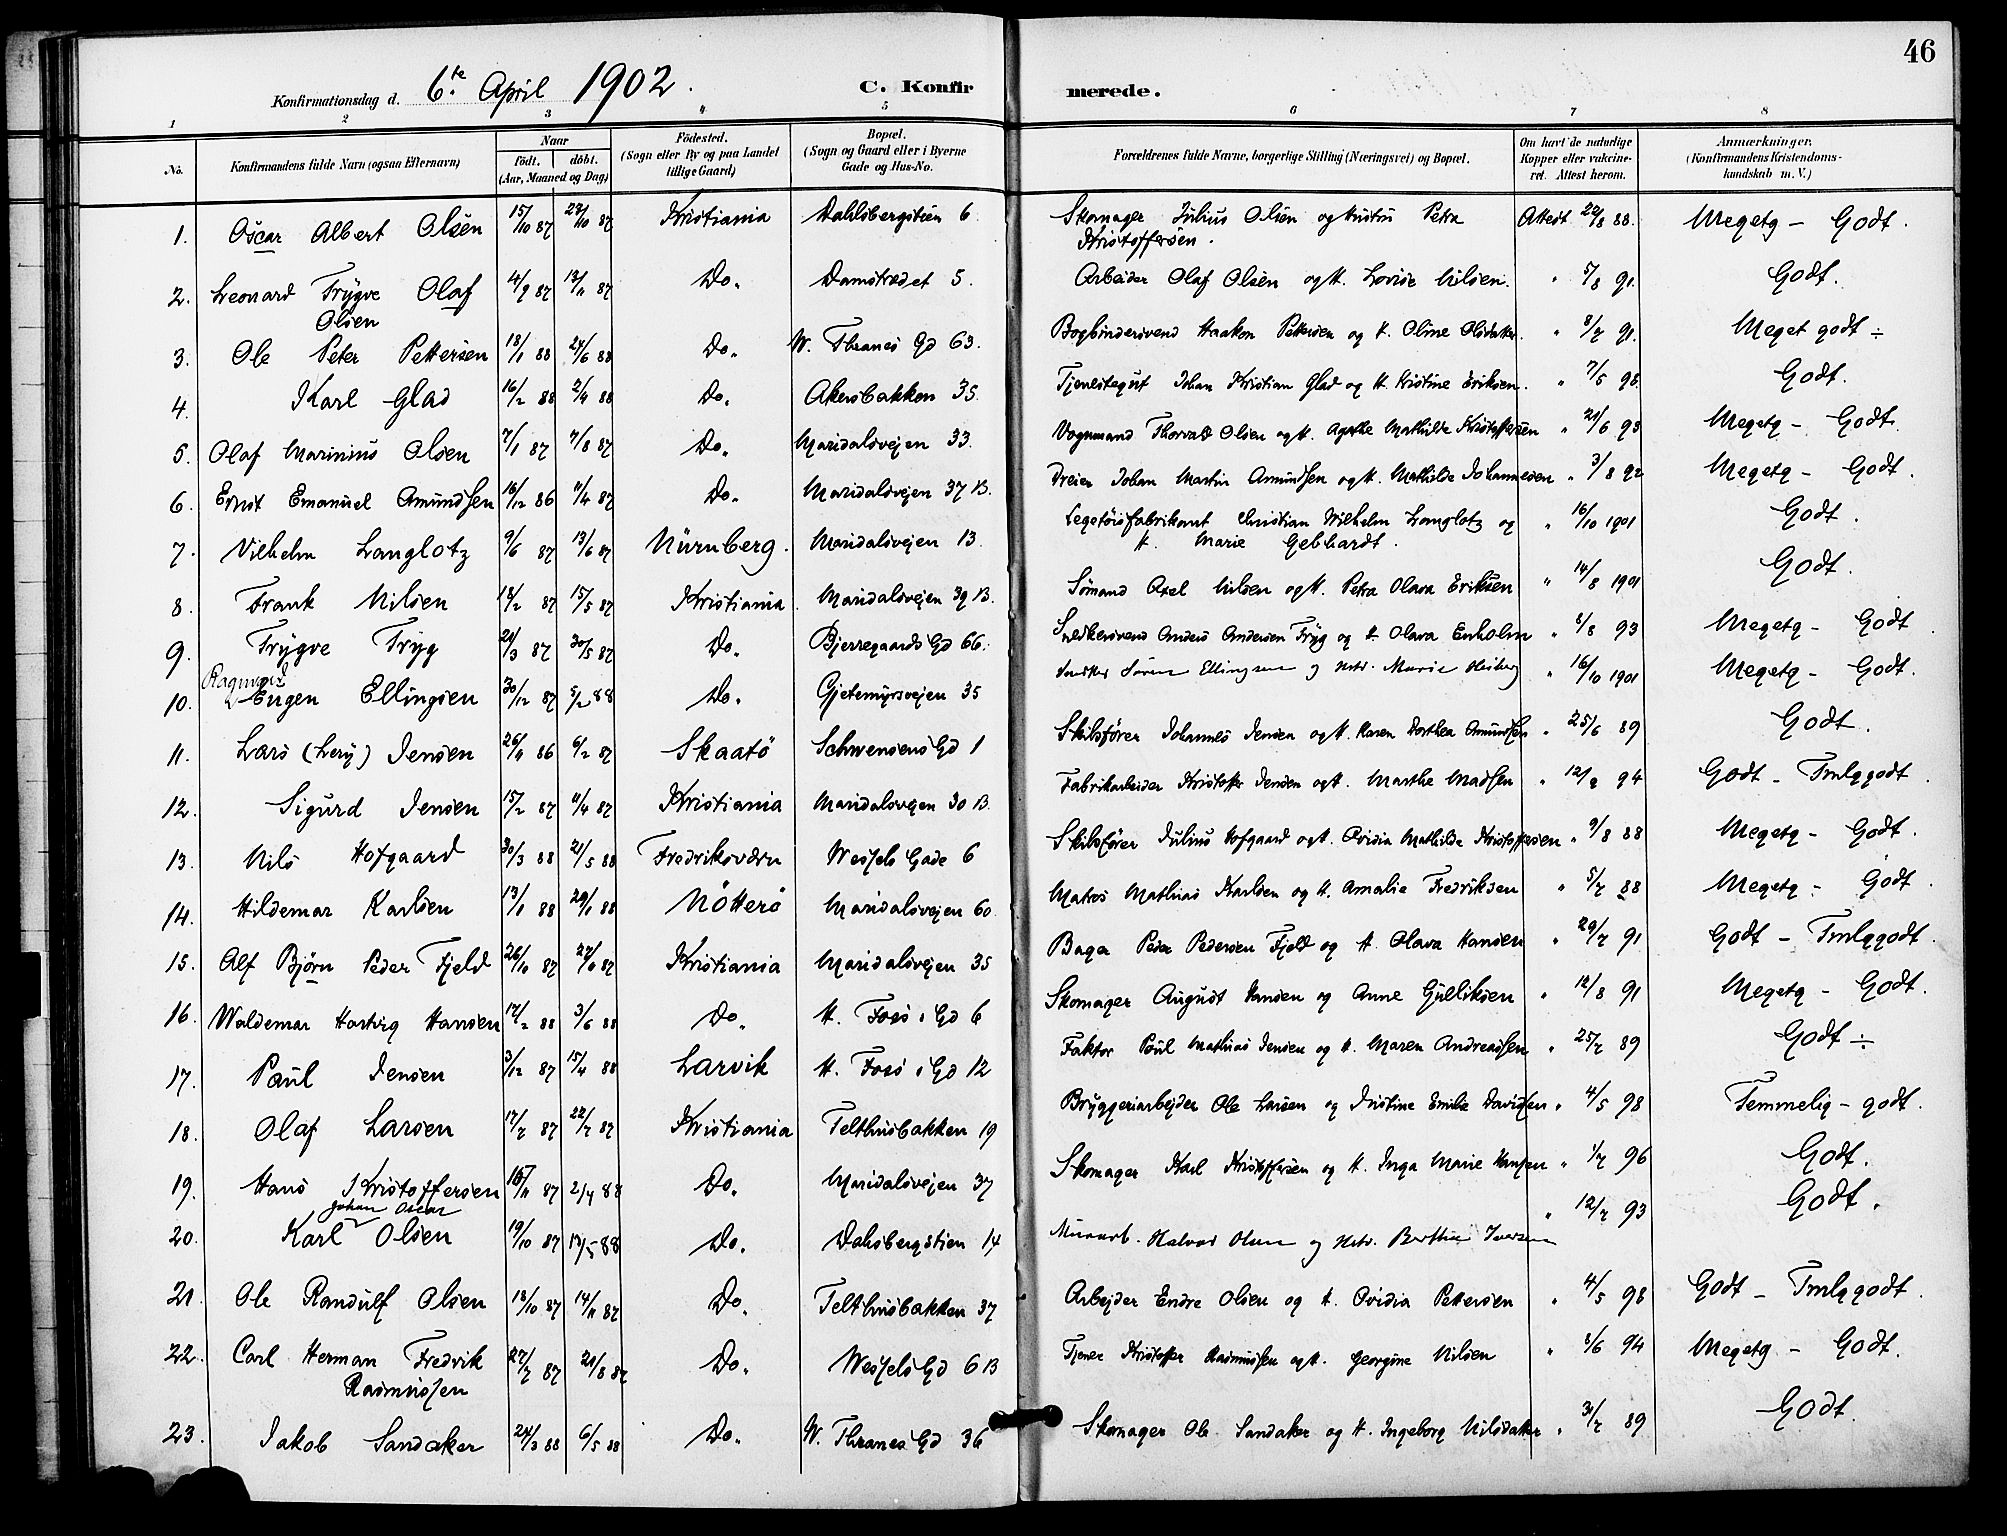 46
Konfirmationsdag d. 6te April 1902. C. Konfirmerede.
1 2 3 4 5 6 7 8
No. Konfirmandens fulde Navn (ogsaa Efternavn) Naar født. døbt. (Aar, Maaned og Dag) Fødested. (Sogn eller By og paa Landet tillige Gaard) Bopæl. (Sogn og Gaard eller i Byerne Gade og Hus-No. Forældrenes fulde Navne, borgerlige Stilling (Næringsvei) og Bopæl. Om havt de naturlige Kopper eller vakcineret. Attest herom. Anmærkninger. (Konfirmandens Kristendomskundskab m. V.)
1. Oscar Albert Olsen 15/10 87 Kristiania Dahlsbergstien 6 Skomager Julius Olsen og Hustru Petra Kristoffersen. Attest 22/8 88. Megetg - Godt.
2. Leonard Trygve Olaf Olsen 4/9 87 13/11 87 Do. Damstrædet 5. Arbeider Olaf Olsen og H. Lovise Nilsen. " 5/8 91. Godt.
3. Ole Peter Pettersen 18/1 88 24/6 88 Do. W. Thranes Gd 63. Bogbindersvend Haakon Pettersen og H. Oline Olsdatter. " 8/7 91. Meget godt ÷
4. Karl Glad 16/2 88 2/4 88 Do. Akersbakken 35. Tjenestegut Johan Kristian Glad og H. Kristine Eriksen. " 7/5 98. Godt.
5. Olaf Marinius Olsen 7/1 87 7/8 87 Do. Maridalsvejen 33. Vognmand Thorvald Olsen og H. Agathe Mathilde Kristoffersen " 21/6 93 Megetg - Godt.
6. Ernst Emanuel Amundsen 16/12 86 11/4 87 Do. Maridalsvejen 37 B. Dreier Johan Martin Amundsen og H. Mathilde Johannesen " 3/8 92 Megetg - Godt.
7. Vilhelm Langlotz 9/6 87 13/6 87 Nürnberg. Maridalsvejen 13. Legetøisfabrikant Christian Wilhelm Langlotz og H. Marie Gebhardt. " 16/10 1901 Godt.
8. Frank Nilsen 18/2 87 15/5 87 Kristiania. Maridalsvejen 39 B. Sømand Axel Nilsen og H. Petra Olava Eriksen " 14/8 1901 Godt.
9. Trygve Tryg 21/3 87 30/5 87 Do. Bjerregaards Gd 66. Snedkersvend Anders Andersen Tryg og H. Olava Enholm " 8/8 93 Megetg - Godt
10. Eugen Ragnvald Ellingsen 30/12 87 5/2 88 Do. Gjetemyrsvejen 35 Snedker Søren Ellingsen og Hstr. Marie " 16/10 1901 Megetg - Godt.
11. Lars (Lery) Jensen 26/11 86 6/2 87 Skaatö Schwensens Gd 1 Skibsfører Johannes Jensen og H. Karen Dorthea Amundsen " 25/6 89 Godt.
12. Sigurd Jensen 15/2 87 11/4 87 Kristiania Maridalsvejen 30 B. Fabrikarbeider Kristoffer Jensen og H. Marthe Madsen " 12/9 94 Godt - Tmlggodt.
13. Nils Hofgaard 30/3 88 21/5 88 Fredriksværn Wessels Gade 6 Skibsfører Julius Hofgaard og H. Ovidia Mathilde Kristoffersen " 9/8 88 Megetg - Godt.
14. Hildemar Karlsen 13/1 88 29/1 88 Nötterö Maridalsvejen 60. Matros Mathias Karlsen og H. Amalie Fredriksen " 5/7 88 Megetg - Godt
15. Alf Bjørn Peder Fjeld 26/10 87 87 Kristiania Maridalsvejen 35 Bager Peder Pedersen Fjeld og H. Olava Hansen " 29/7 91 Godt - Tmlggodt.
16. Waldemar Hartvig Hansen 17/2 88 3/6 88 Do. H. Foss's Gd 6 Skomager August Hansen og Anne Gulliksen " 12/8 91 Megetg - Godt.
17. Paul Jensen 3/12 87 15/4 88 Larvik H. Foss's Gd 12 Faktor Paul Mathias Jensen og H. Maren Andreassen " 25/7 89 Godt ÷
18. Olaf Larsen 17/7 87 22/7 87 Kristiania Telthusbakken 19 Bryggeriarbejder Ole Larsen og Kristine Emilie Davidsen " 4/5 98 Temmelig - godt.
19. Hans Kristoffersen 87 2/4 88 Do. Maridalsvejen 37 Skomager Karl Kristoffersen og H. Inga Marie Hansen " 1/7 96 Godt.
20. Karl Johan Oscar Olsen 19/10 87 13/5 88 Do. Dalsbergstien 14 Murarb. Halvor Olsen og Hstr. Berthine Iversen " 12/7 93 Godt.
21. Ole Randulf Olsen 18/10 87 14/11 87 Do. Telthusbakken 37 Arbejder Endre Olsen og H. Ovidia Pettersen " 4/5 98 Godt - Tmlggodt.
22. Carl Herman Fredrik Rasmussen 27/7 87 21/8 87 Do. Wessels Gd 6 B Tjener Kristoffer Rasmussen og H. Georgine Nilsen " 8/6 94 Megetg - Godt.
23. Jakob Sandaker 24/3 88 6/5 88 Do. W. Thranes Gd 36 Skomager Ole Sandaker og H. Ingeborg Nilsdatter " 31/7 89 Godt.